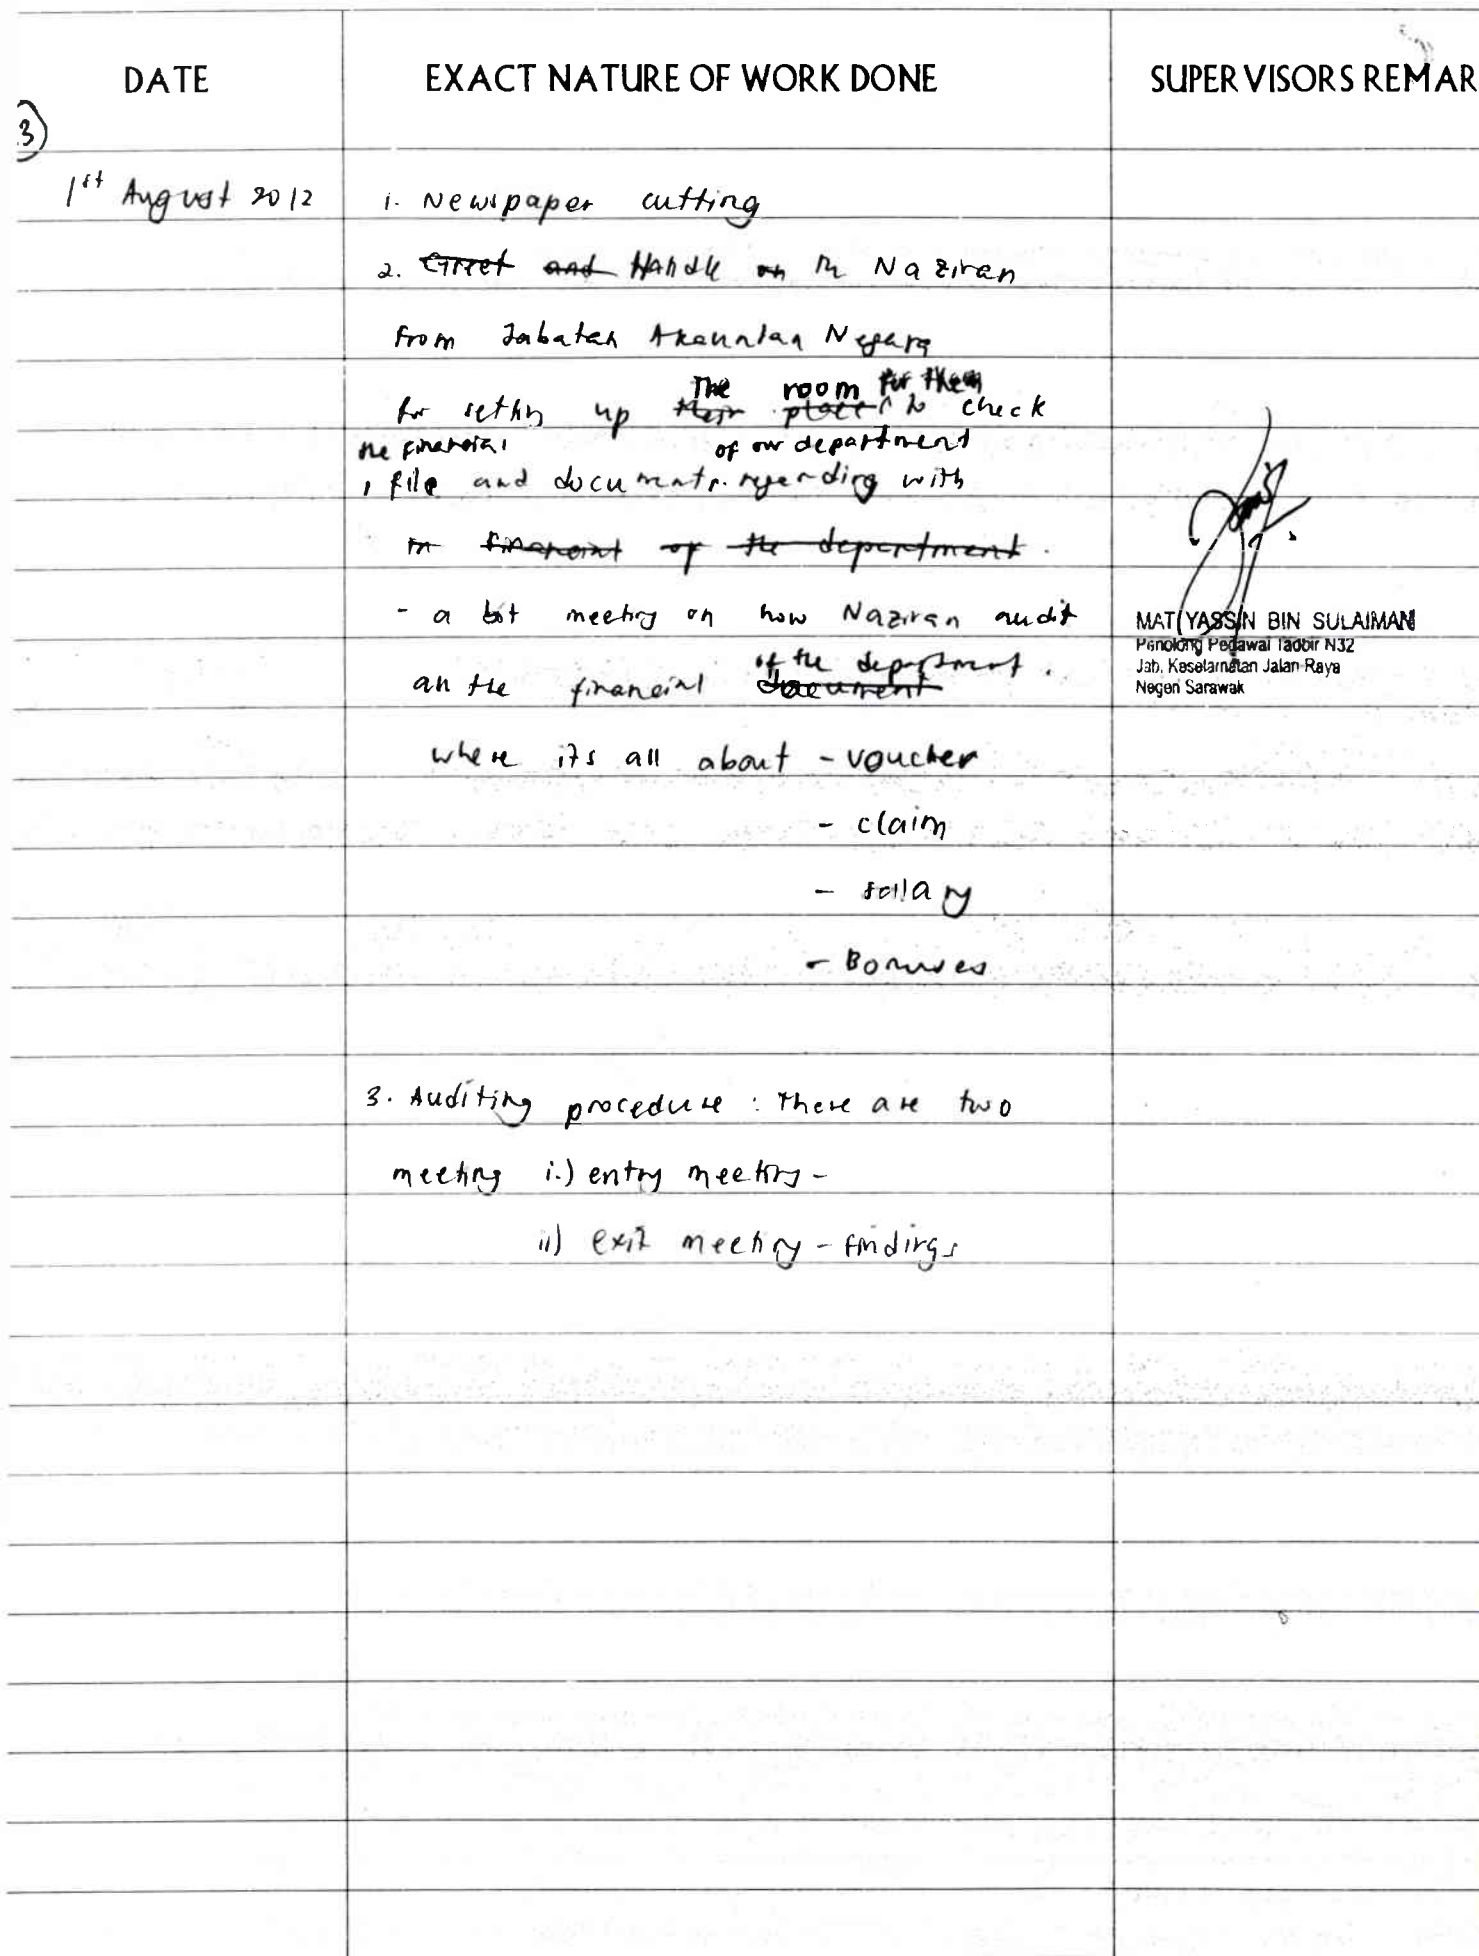 DATE EXACT NATURE OF WORK DONE SUPERVISORS REMAR
3
1st August 2012 1. Newspaper cutting
2. Greet and Handle on the Naziran
from Jabatan Akauntan Negara
The room for them
for setting up their place to check
the financial of our department
file and documents regarding with
financial of the department.
- a bit meeting on how Naziran audit
of the department.
all the financial document
where its all about - voucher
- claim
- sallary
- Bonuses
3. Auditing procedure : There are two
meeting i.) entry meeting -
ii) exit meeting - findings
MAT YASSIN BIN SULAIMAN
Penolong Pegawai Tadbir N32
Jab. Keselamatan Jalan Raya
Negeri Sarawak